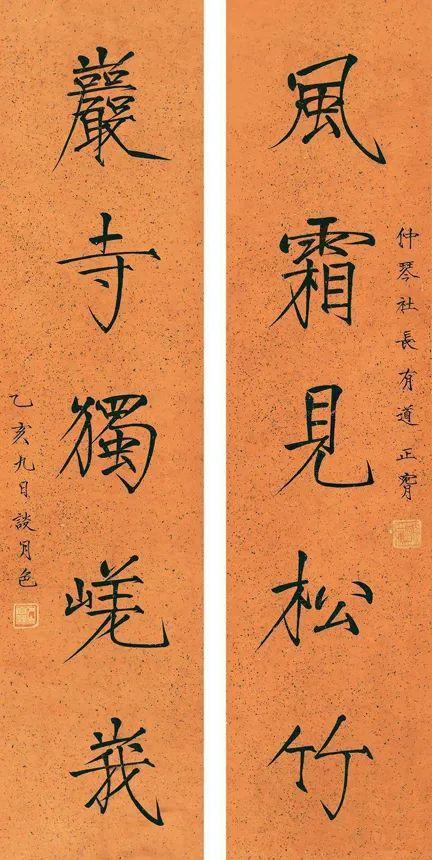 風霜見松竹
仲琴社長有道正
巖寺獨嵯峩
乙亥九日談月色